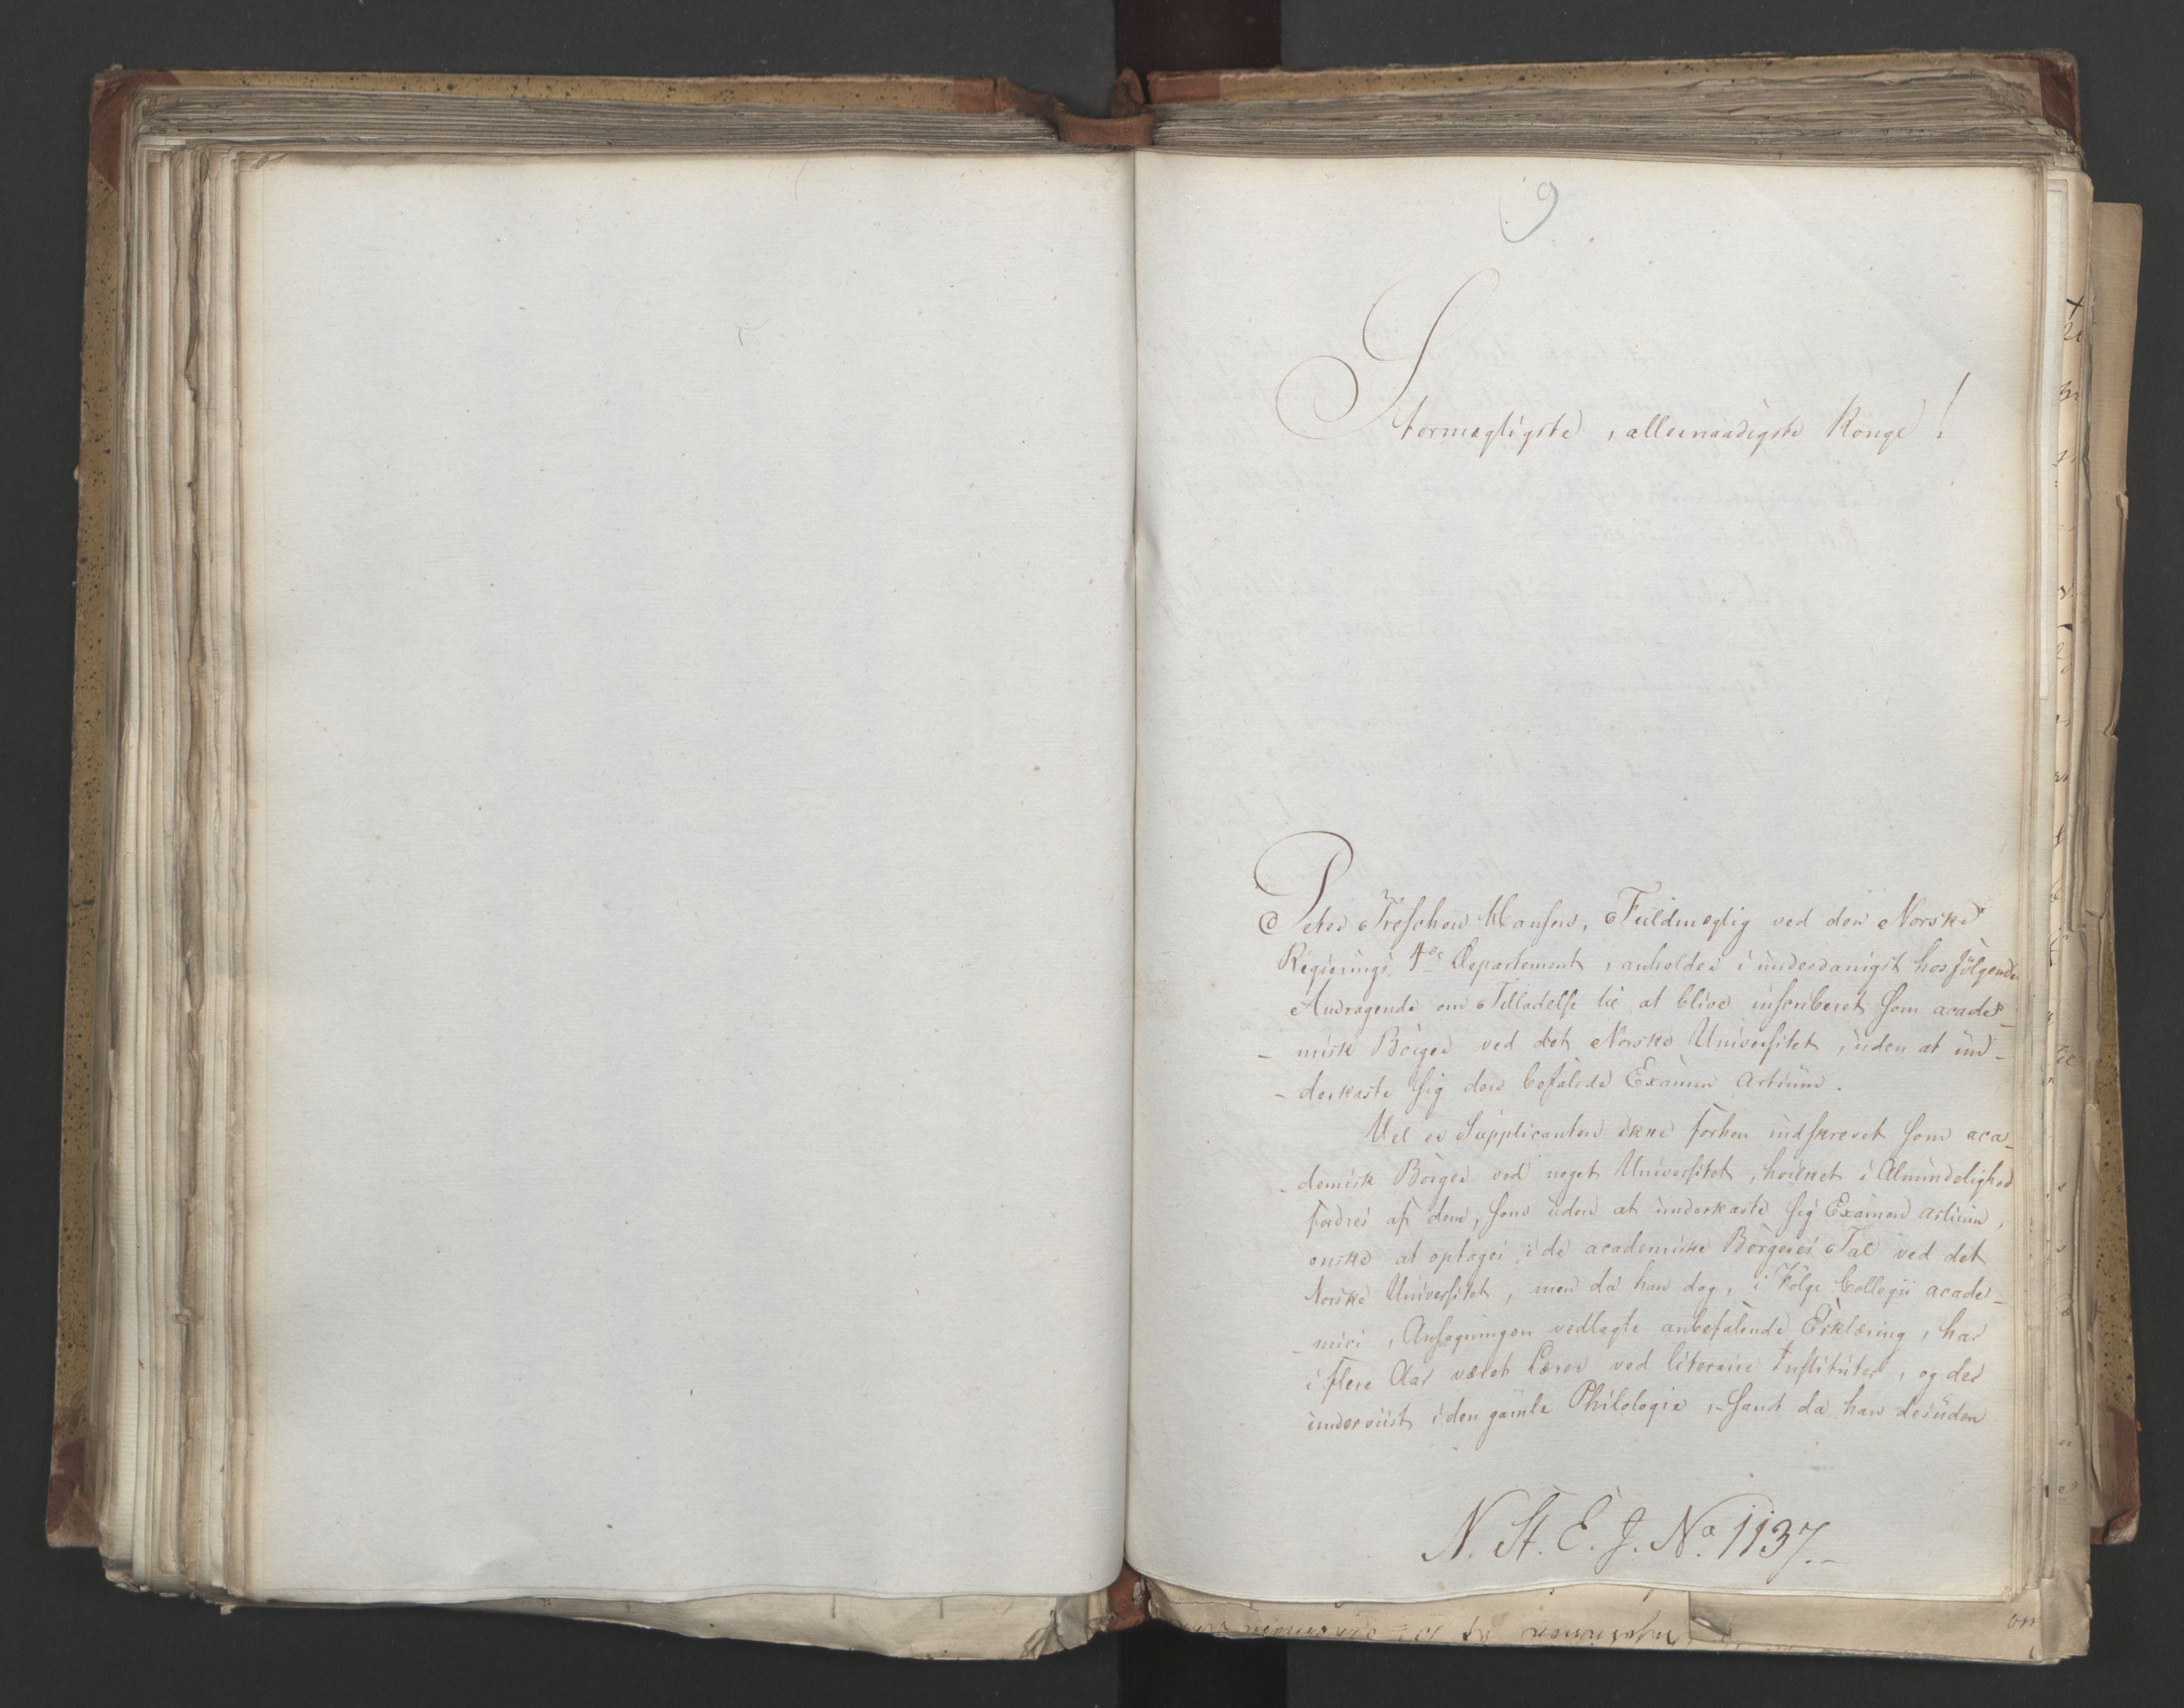 9
Stormægtigste, allernaadigste Konge!
Peter Treschow Hansen, Fuldmægtig ved den Norske
Regjerings 4de Departement, anholder i underdanigst hosfölgende
Andragende om Tilladelse til at blive inscriberet som acade-
-misk Börger ved det Norske Universitet, uden at un-
-derkaste sig den befalede Examen artium.
Vel er Supplicanten ikke forhen indskrevet som aca-
-demisk Borger ved noget Universitet, hvilket i Almindelighed
fordres af dem, som uden at underkaste sig Examen artium,
onske at optages i de academiske Borgeres Tal ved det
Norske Universitet, men da han dog, i Fölge Collegii acade-
-mici, Ansøgningen vedlagte anbefalende Erklæring, har
i flere Aar været Lærer ved literaire Instituter, og der
underviist i den gamle Philologie, samt da han desuden
N. St. E. J. No. 1137.-